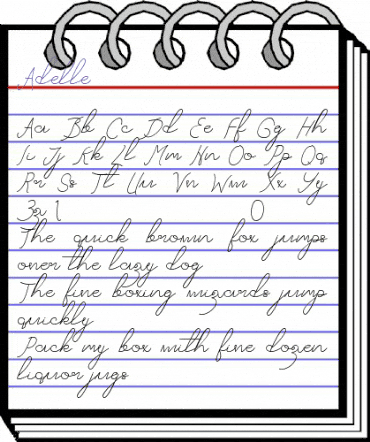 Adelle
Aa Bb Cc Dd Ee Ff Gg Hh
Ii Jj Kk Ll Mm Nn Oo Pp Qq
Rr Ss Tt Uu Vv Ww Xx Yy
Zz 1 0
The quick brown fox jumps
over the lazy dog
The five boxing wizards jump
quickly
Pack my box with five dozen
liquor jugs